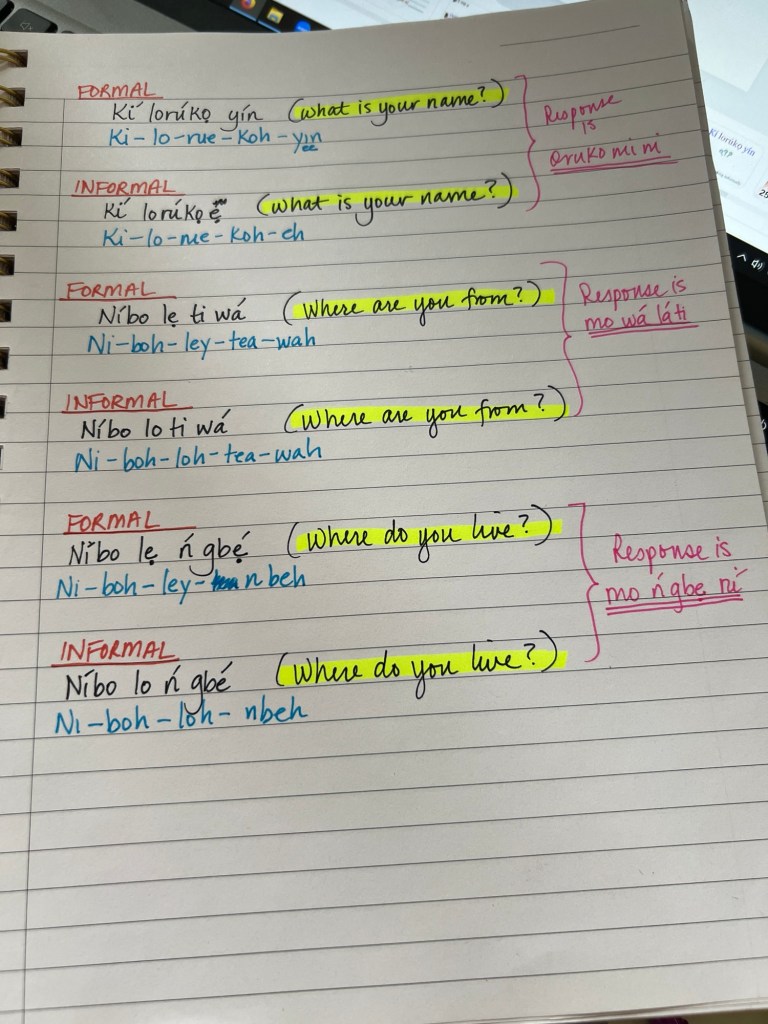 FORMAL
Kí lorúkọ yín (What is your name?)
Ki-lo-rue-Koh-yin
ee
INFORMAL
Kí lorúkọ ẹ (What is your name?)
Ki-lo-rue-Koh-eh
Response
is
Oruko mi ni
FORMAL
Níbo lẹ ti wá (Where are you from?)
Ni-boh-ley-tea-wah
INFORMAL
Níbo lo ti wá (Where are you from?)
Ni-boh-loh-tea-wah
Response is
mo wá láti
FORMAL
Níbo lẹ ń gbẹ́ (Where do you live?)
Ni-boh-ley-nbeh
INFORMAL
Níbo lo ń gbé (Where do you live?)
Ni-boh-loh-nbeh
Response is
mo ńgbẹ ní
Kí lorúkọ yín